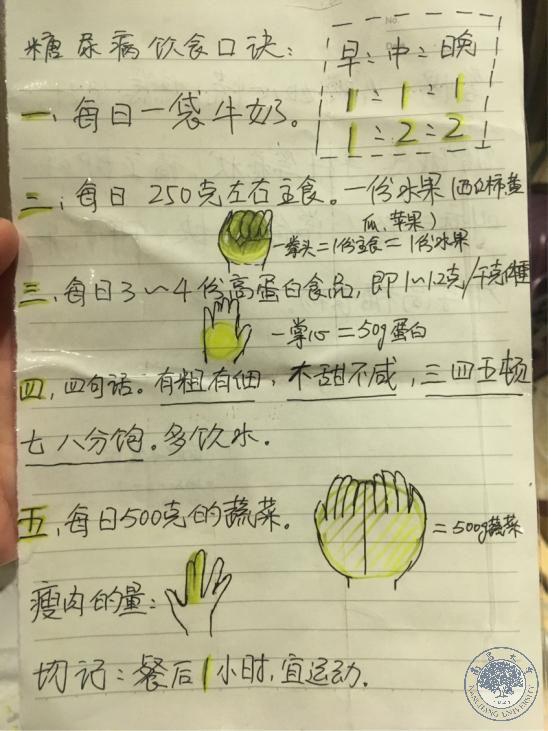 糖尿病饮食口诀:
早:中:晚
1:1:1
1:2:2
一、每日一袋牛奶。
二、每日 250克左右主食。一份水果(西红柿、黄
瓜、苹果)
一拳头=1份主食=1份水果
三、每日3~4份高蛋白食品,即1~1.2克/千克体重
一掌心=50g蛋白
四、四句话。有粗有细,不甜不咸,三四五顿
七八分饱。多饮水。
五、每日500克的蔬菜。
=500g蔬菜
瘦肉的量:
切记:餐后1小时,宜运动。
南昌大学
1921
NANCHANG UNIVERSITY